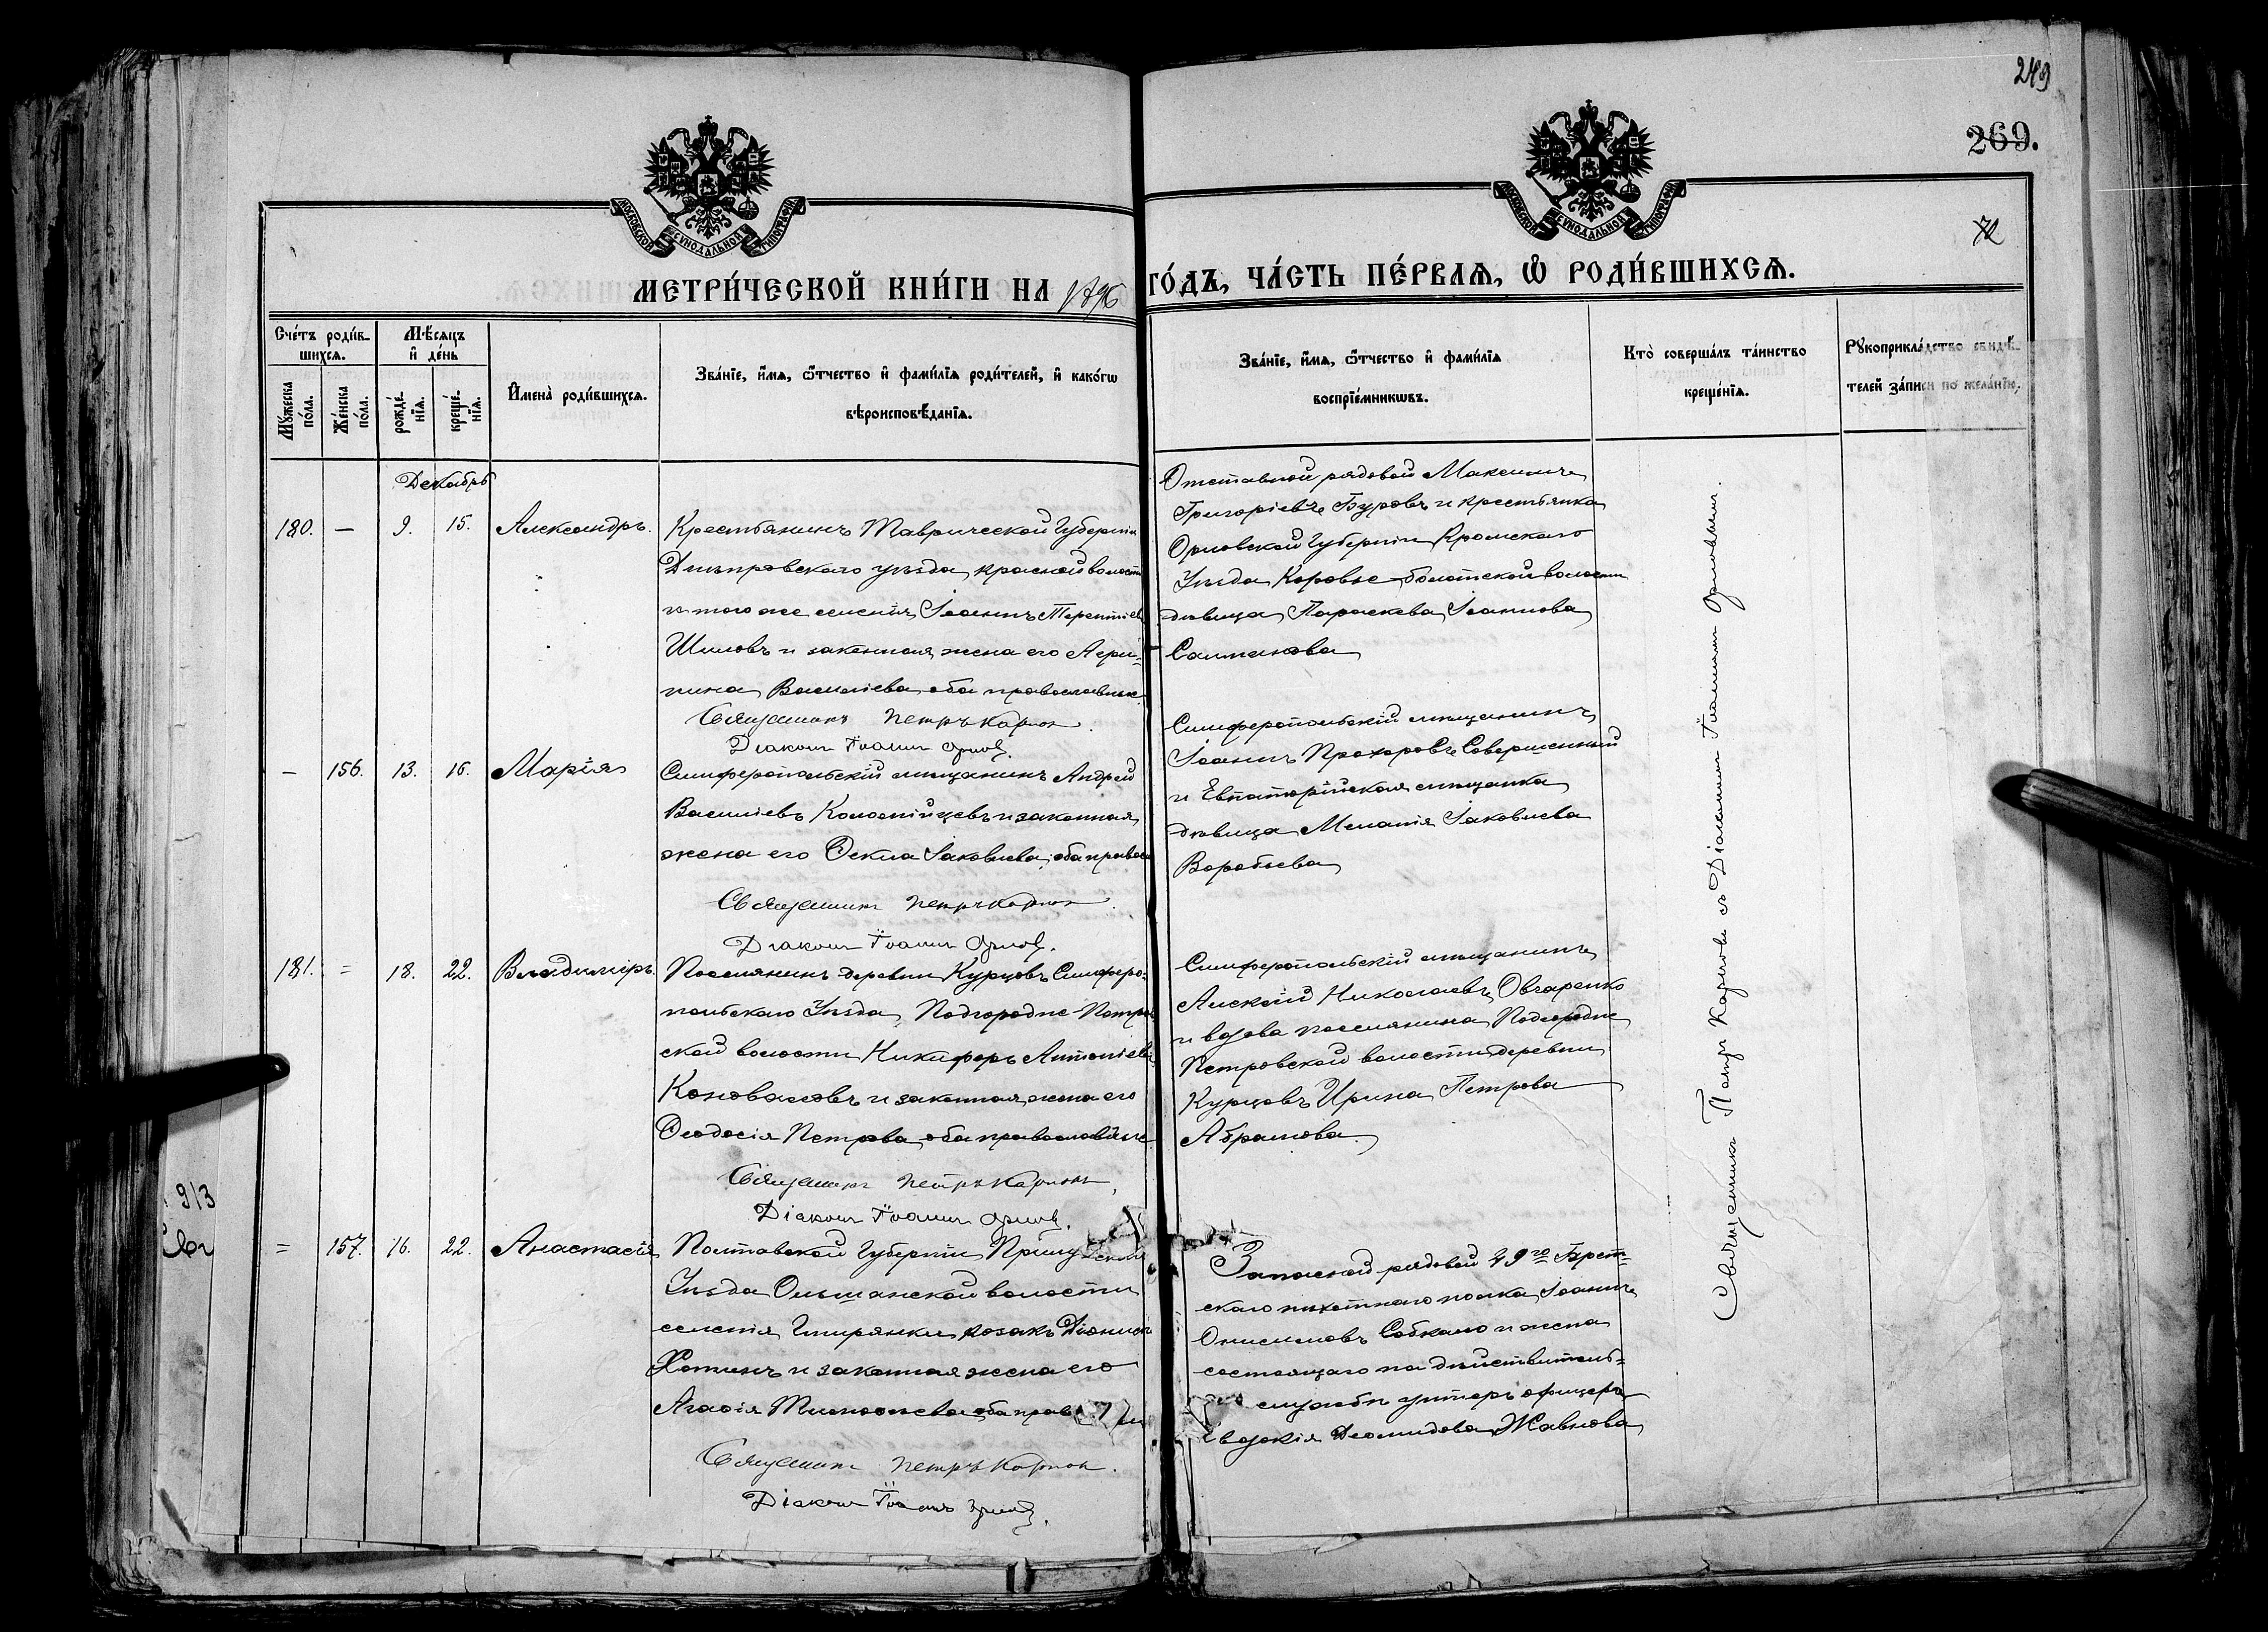 249
269.
72
МОСКОВСКОЙ СУНОДАЛЬНОЙ ТИПОГРАФІИ
МОСКОВСКОЙ СУНОДАЛЬНОЙ ТИПОГРАФІИ
МЕТРИ́ЧЕСКОЙ КНИ́ГИ НА 1896 ГО́ДЪ, ЧА́СТЬ ПЕ́РВАѦ, Ѽ РОДИ́ВШИХСѦ.
Сче́тъ роди́в-
шихсѧ.
Мꙋ́жеска
по́ла.
Же́нска
по́ла.
Мѣ́сѧцъ
и҆ де́нь
рожде́-
нїѧ.
креще́-
нїѧ.
И҆мена̀ роди́вшихсѧ.
Зва́нїе, и҆́мѧ, ѻ҆́тчество и҆ фами́лїѧ роди́телей, и҆ како́гѡ
вѣроисповѣ́данїѧ.
Зва́нїе, и҆́мѧ, ѻ҆́тчество и҆ фами́лїѧ
воспрїе́мникѡвъ.
Кто̀ соверша́лъ та́инство
креще́нїѧ.
Рꙋкоприкла́дство свидѣ́-
телей за́писи по жела́нїю.
Декабрь
180. — 9. 15. Александръ.
Крестьянинъ Таврической Губерніи
Днѣпровскаго уѣзда, Красной волости
и того же селенія Іоаннъ Терентіевъ
Шиловъ и законная жена его Агри-
пина Василіева, оба православные
Священникъ Петръ Карпов
Діаконъ Іоаннъ Орлов.
Отставной рядовой Максимъ
Григоріевъ Буровъ и крестьянка
Орловской Губерніи Кромскаго
Уѣзда Коровье-болотской волости
дѣвица Параскева Іоаннова
— 156. 13. 16. Марія
Симферопольскій мѣщанинъ Андрей
Василіевъ Коломійцевъ и законная
жена его Ѳекла Іаковлева, оба правосл
Священникъ Петръ Карпов
Діаконъ Іоаннъ Орлов.
Симферопольскій мѣщанинъ
Іоаннъ Прохоровъ Совершенный
и Евпаторійская мѣщанка
дѣвица Меланія Іаковлева
Воробьева
181. = 18. 22. Владиміръ.
Поселянинъ деревни Курцовъ Симферо-
польскаго Уѣзда, Подгородне-Петров
ской волости Никифоръ Антоніевъ
Коноваловъ и законная жена его
Ѳеодосія Петрова, оба православные
Священникъ Петръ Карпов
Діаконъ Іоаннъ Орлов.
Симферопольскій мѣщанинъ
Алексій Николаевъ Овчаренко
и вдова поселянина Подгородне
Петровской волости деревни
Курцовъ Ирина Петрова
Абрамова
= 157. 16. 22. Анастасія
Полтавской Губерніи Прилуцкаго
Уѣзда Ольшанской волости
селенія Гмирянки козакъ Діонисій
Хоминъ и законная жена его
Агаѳія Тимоѳеева, оба прав
Священникъ Петръ Карпов.
Діаконъ Іоаннъ Орлов.
Запасной рядовой 49го Брест-
скаго пѣхотнаго полка Іоаннъ
Онисимовъ и жена
состоящаго на дѣйствитель-
службѣ унтеръ офицера
Евдокія Деомидова
Священникъ Петръ Карповъ съ Діакономъ Іоанномъ Орловымъ.
9/3